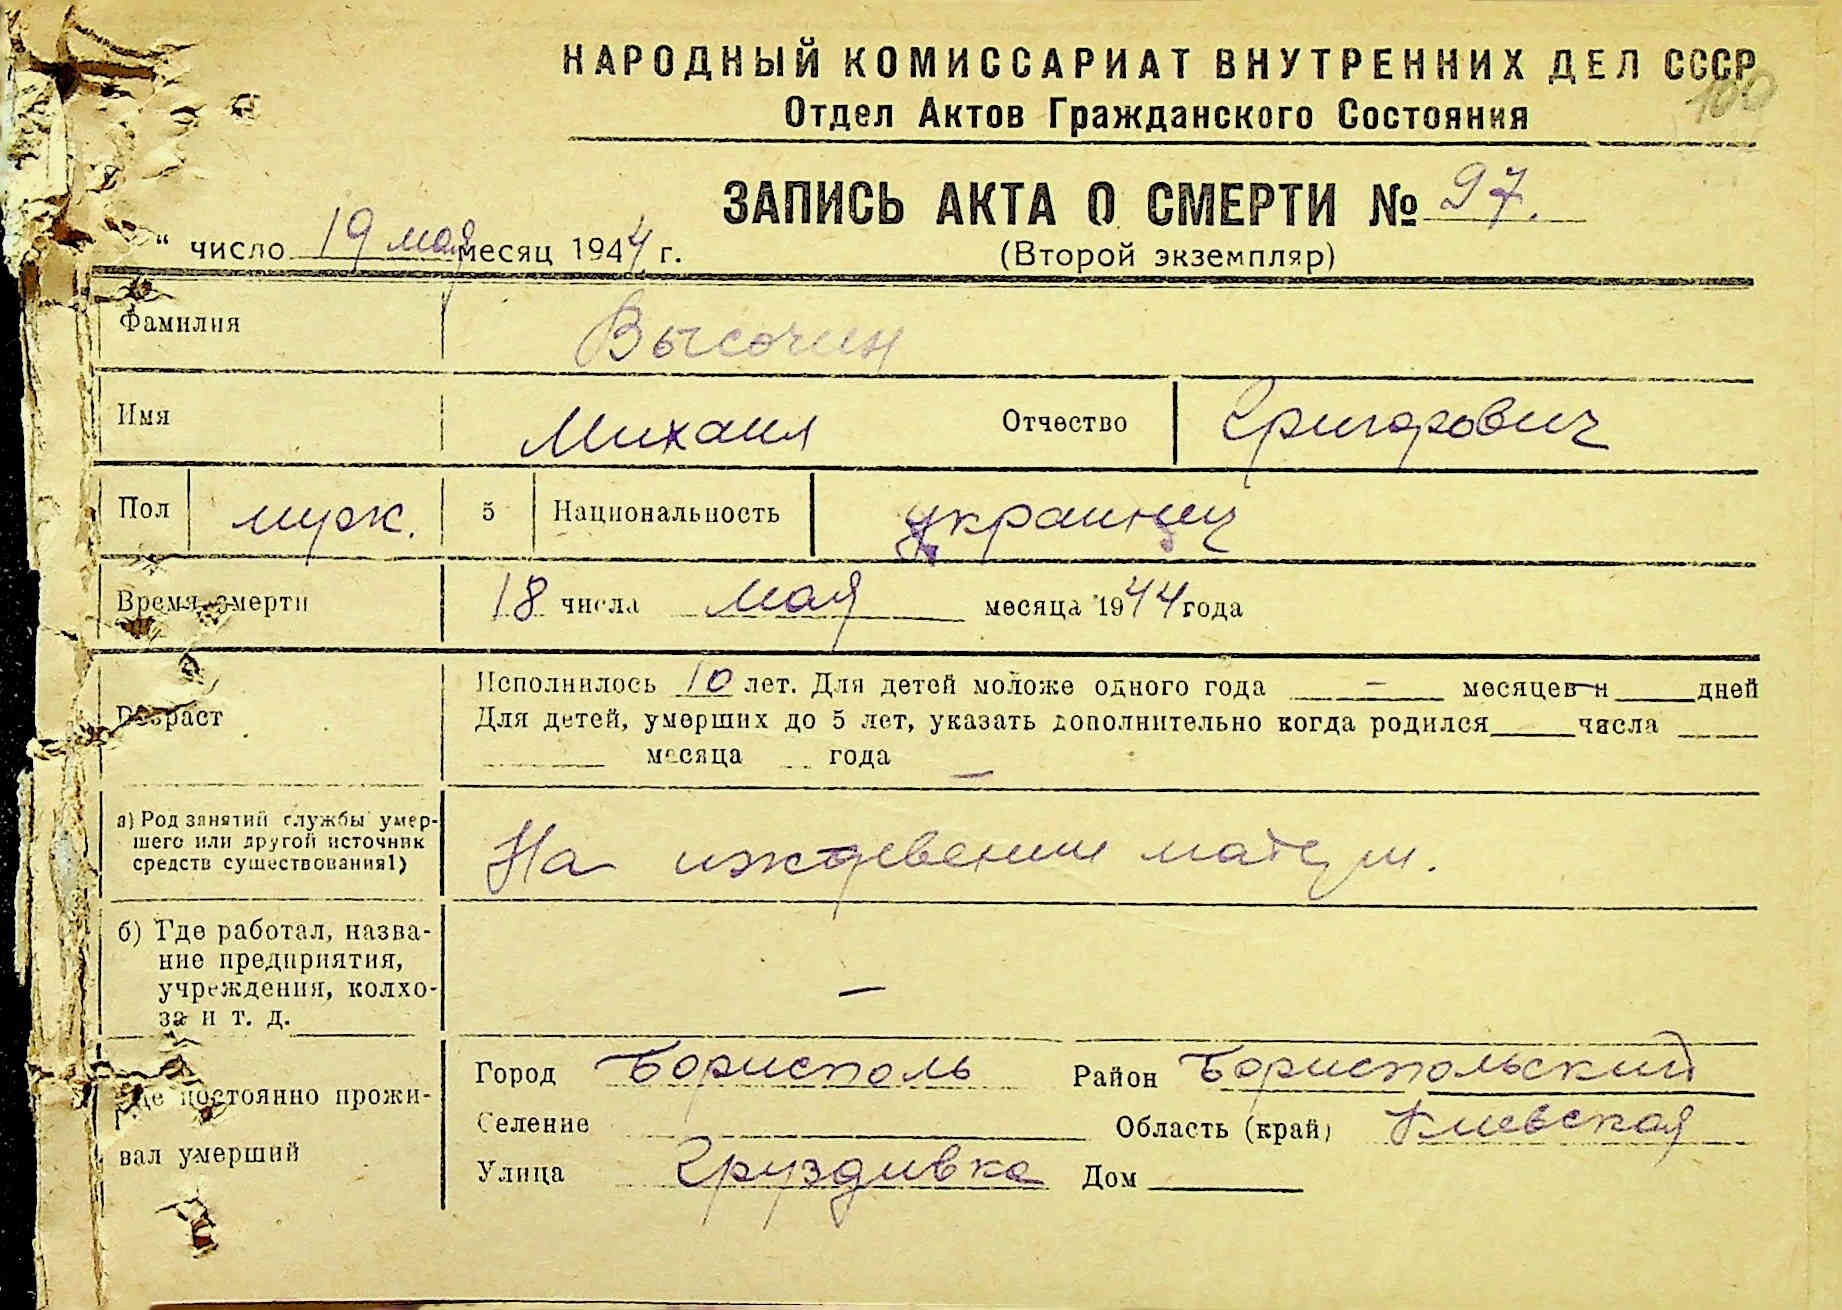 НАРОДНЫЙ КОМИССАРИАТ ВНУТРЕННИХ ДЕЛ СССР
100
Отдел Актов Гражданского Состояния
ЗАПИСЬ АКТА О СМЕРТИ № 97.
“ число 19 мая месяц 1944 г.
(Второй экземпляр)
Фамилия Высочин
Имя Михаил Отчество Григорович
Пол муж. 5 Национальность украинец
Время смерти 18 числа мая месяца 1944 года
Возраст Исполнилось 10 лет. Для детей моложе одного года — месяцев и дней
Для детей, умерших до 5 лет, указать дополнительно когда родился числа
месяца года —
а) Род занятий службы умер-
шего или другой источник
средств существования1)
На иждевении матери.
б) Где работал, назва-
ние предприятия,
учреждения, колхо-
за и т. д.
—
Где постоянно прожи-
вал умерший
Город Борисполь Район Бориспольский
Селение Область (край) Киевская
Улица Груздивка Дом